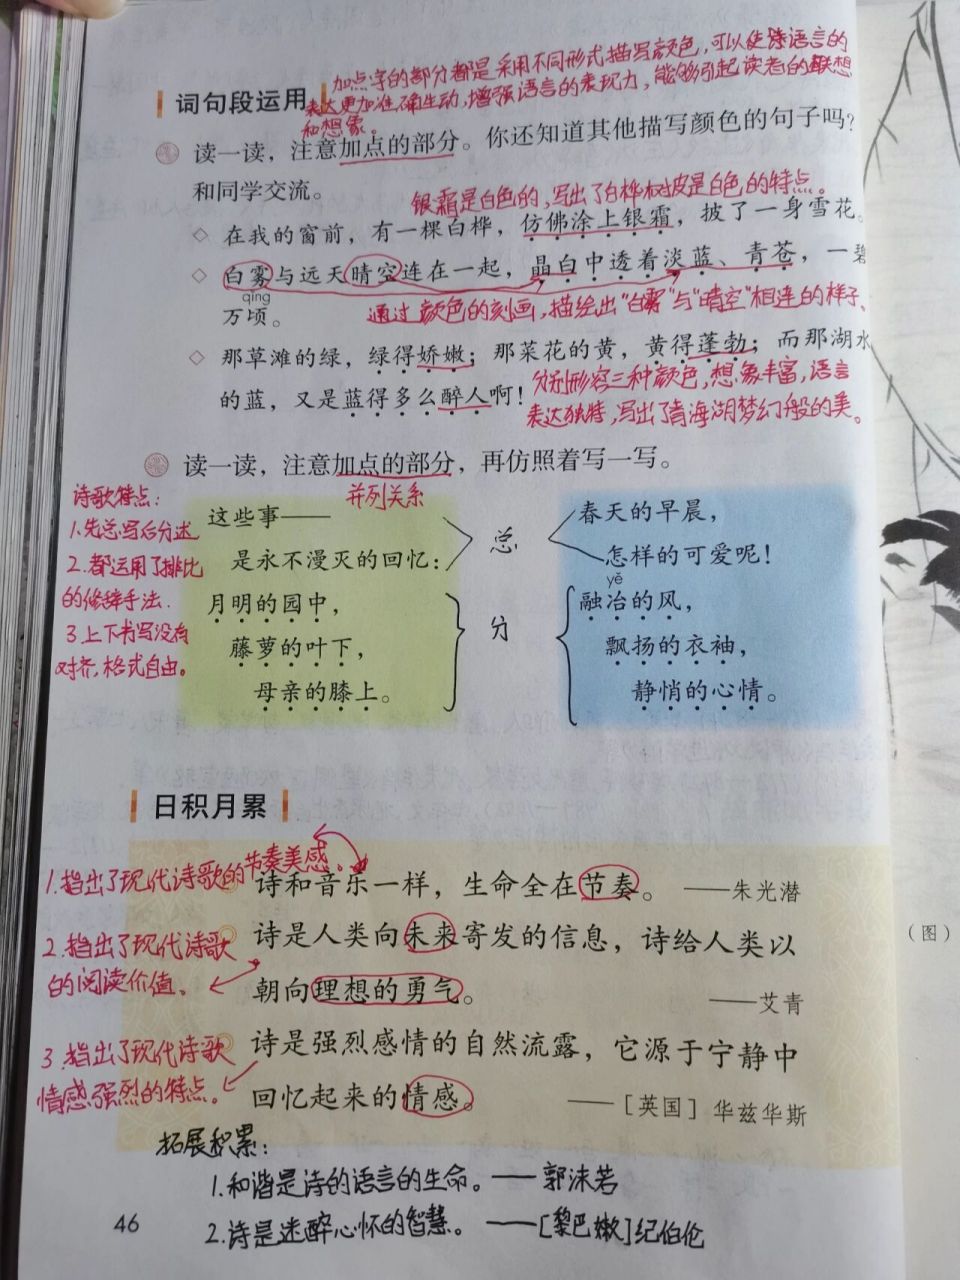 加点字的部分都是采用不同形式描写颜色，可以使诗语言的
表达更加准确生动，增强语言的表现力，能够引起读者的联想
和想象。
词句段运用
读一读，注意加点的部分。你还知道其他描写颜色的句子吗？
和同学交流。
银霜是白色的，写出了白桦树皮是白色的特点。
◇ 在我的窗前，有一棵白桦，仿佛涂上银霜，披了一身雪花。
◇ 白雾与远天晴空连在一起，晶白中透着淡蓝、青苍，一碧
qǐng
万顷。
通过颜色的刻画，描绘出“白雾”与“晴空”相连的样子。
◇ 那草滩的绿，绿得娇嫩；那菜花的黄，黄得蓬勃；而那湖水
的蓝，又是蓝得多么醉人啊！
分别形容三种颜色，想象丰富，语言
表达独特，写出了青海湖梦幻般的美。
读一读，注意加点的部分，再仿照着写一写。
并列关系
诗歌特点：
1.先总写后分述
2.都运用了排比
的修辞手法.
3.上下书写没有
对齐，格式自由。
这些事——
是永不漫灭的回忆：
月明的园中，
藤萝的叶下，
母亲的膝上。
总
分
春天的早晨，
怎样的可爱呢！
yě
融冶的风，
飘扬的衣袖，
静悄的心情。
日积月累
1.指出了现代诗歌的节奏美感。
诗和音乐一样，生命全在节奏。 ——朱光潜
2.指出了现代诗歌
的阅读价值。
诗是人类向未来寄发的信息，诗给人类以
朝向理想的勇气。 ——艾青
3.指出了现代诗歌
情感强烈的特点。
诗是强烈感情的自然流露，它源于宁静中
回忆起来的情感。 ——［英国］华兹华斯
拓展积累：
1.和谐是诗的语言的生命。——郭沫若
2.诗是迷醉心怀的智慧。——［黎巴嫩］纪伯伦
46
（图）